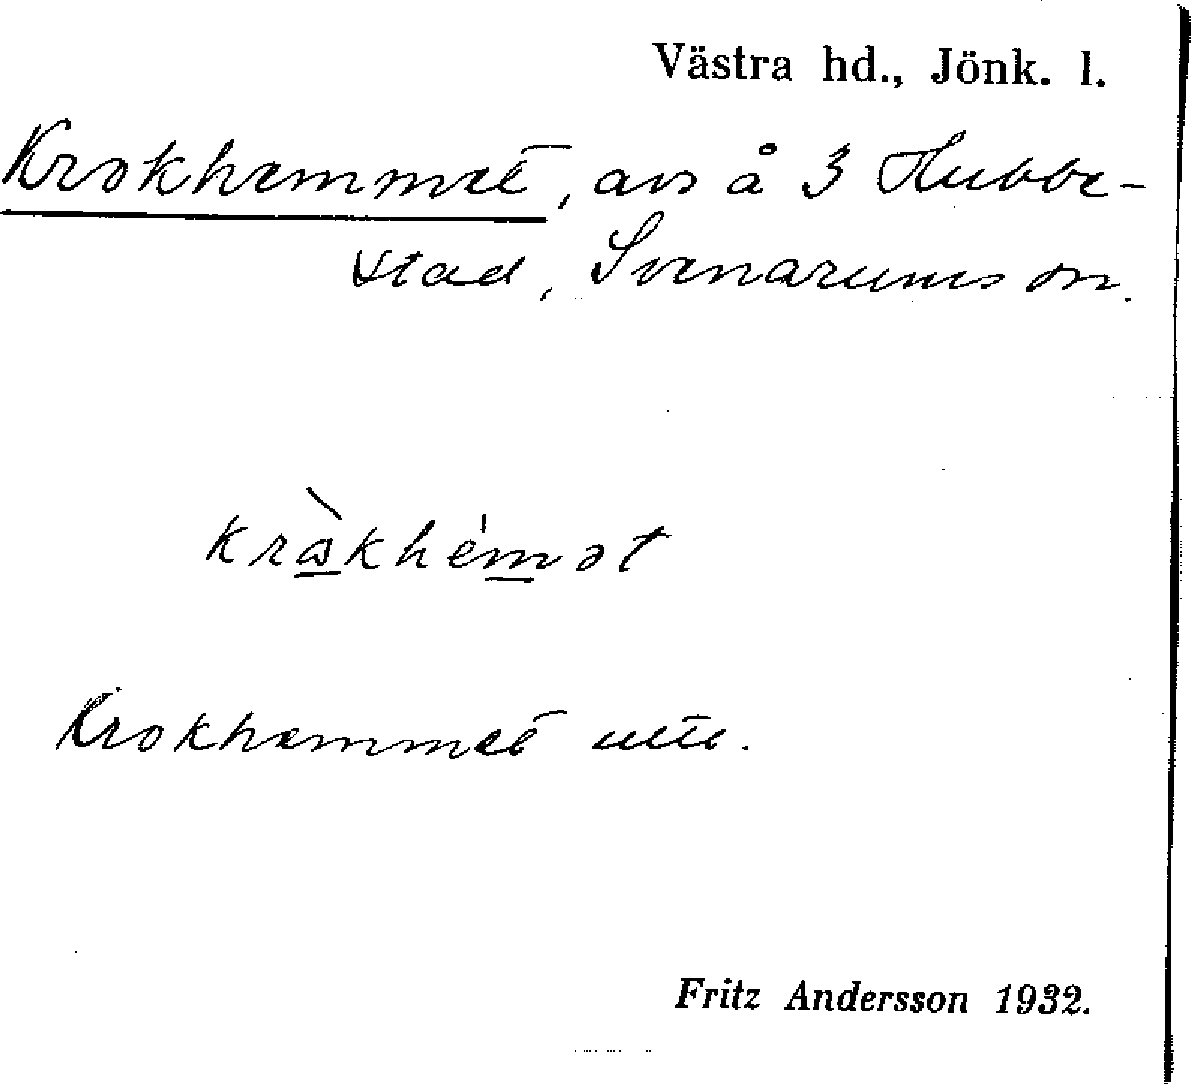 Västra hd., Jönk. l.
Krokhemmet, avs å 3 Hubbe-
stad, Svenarums sn.
kråkhémət
Krokhemmet
Fritz Andersson 1932.